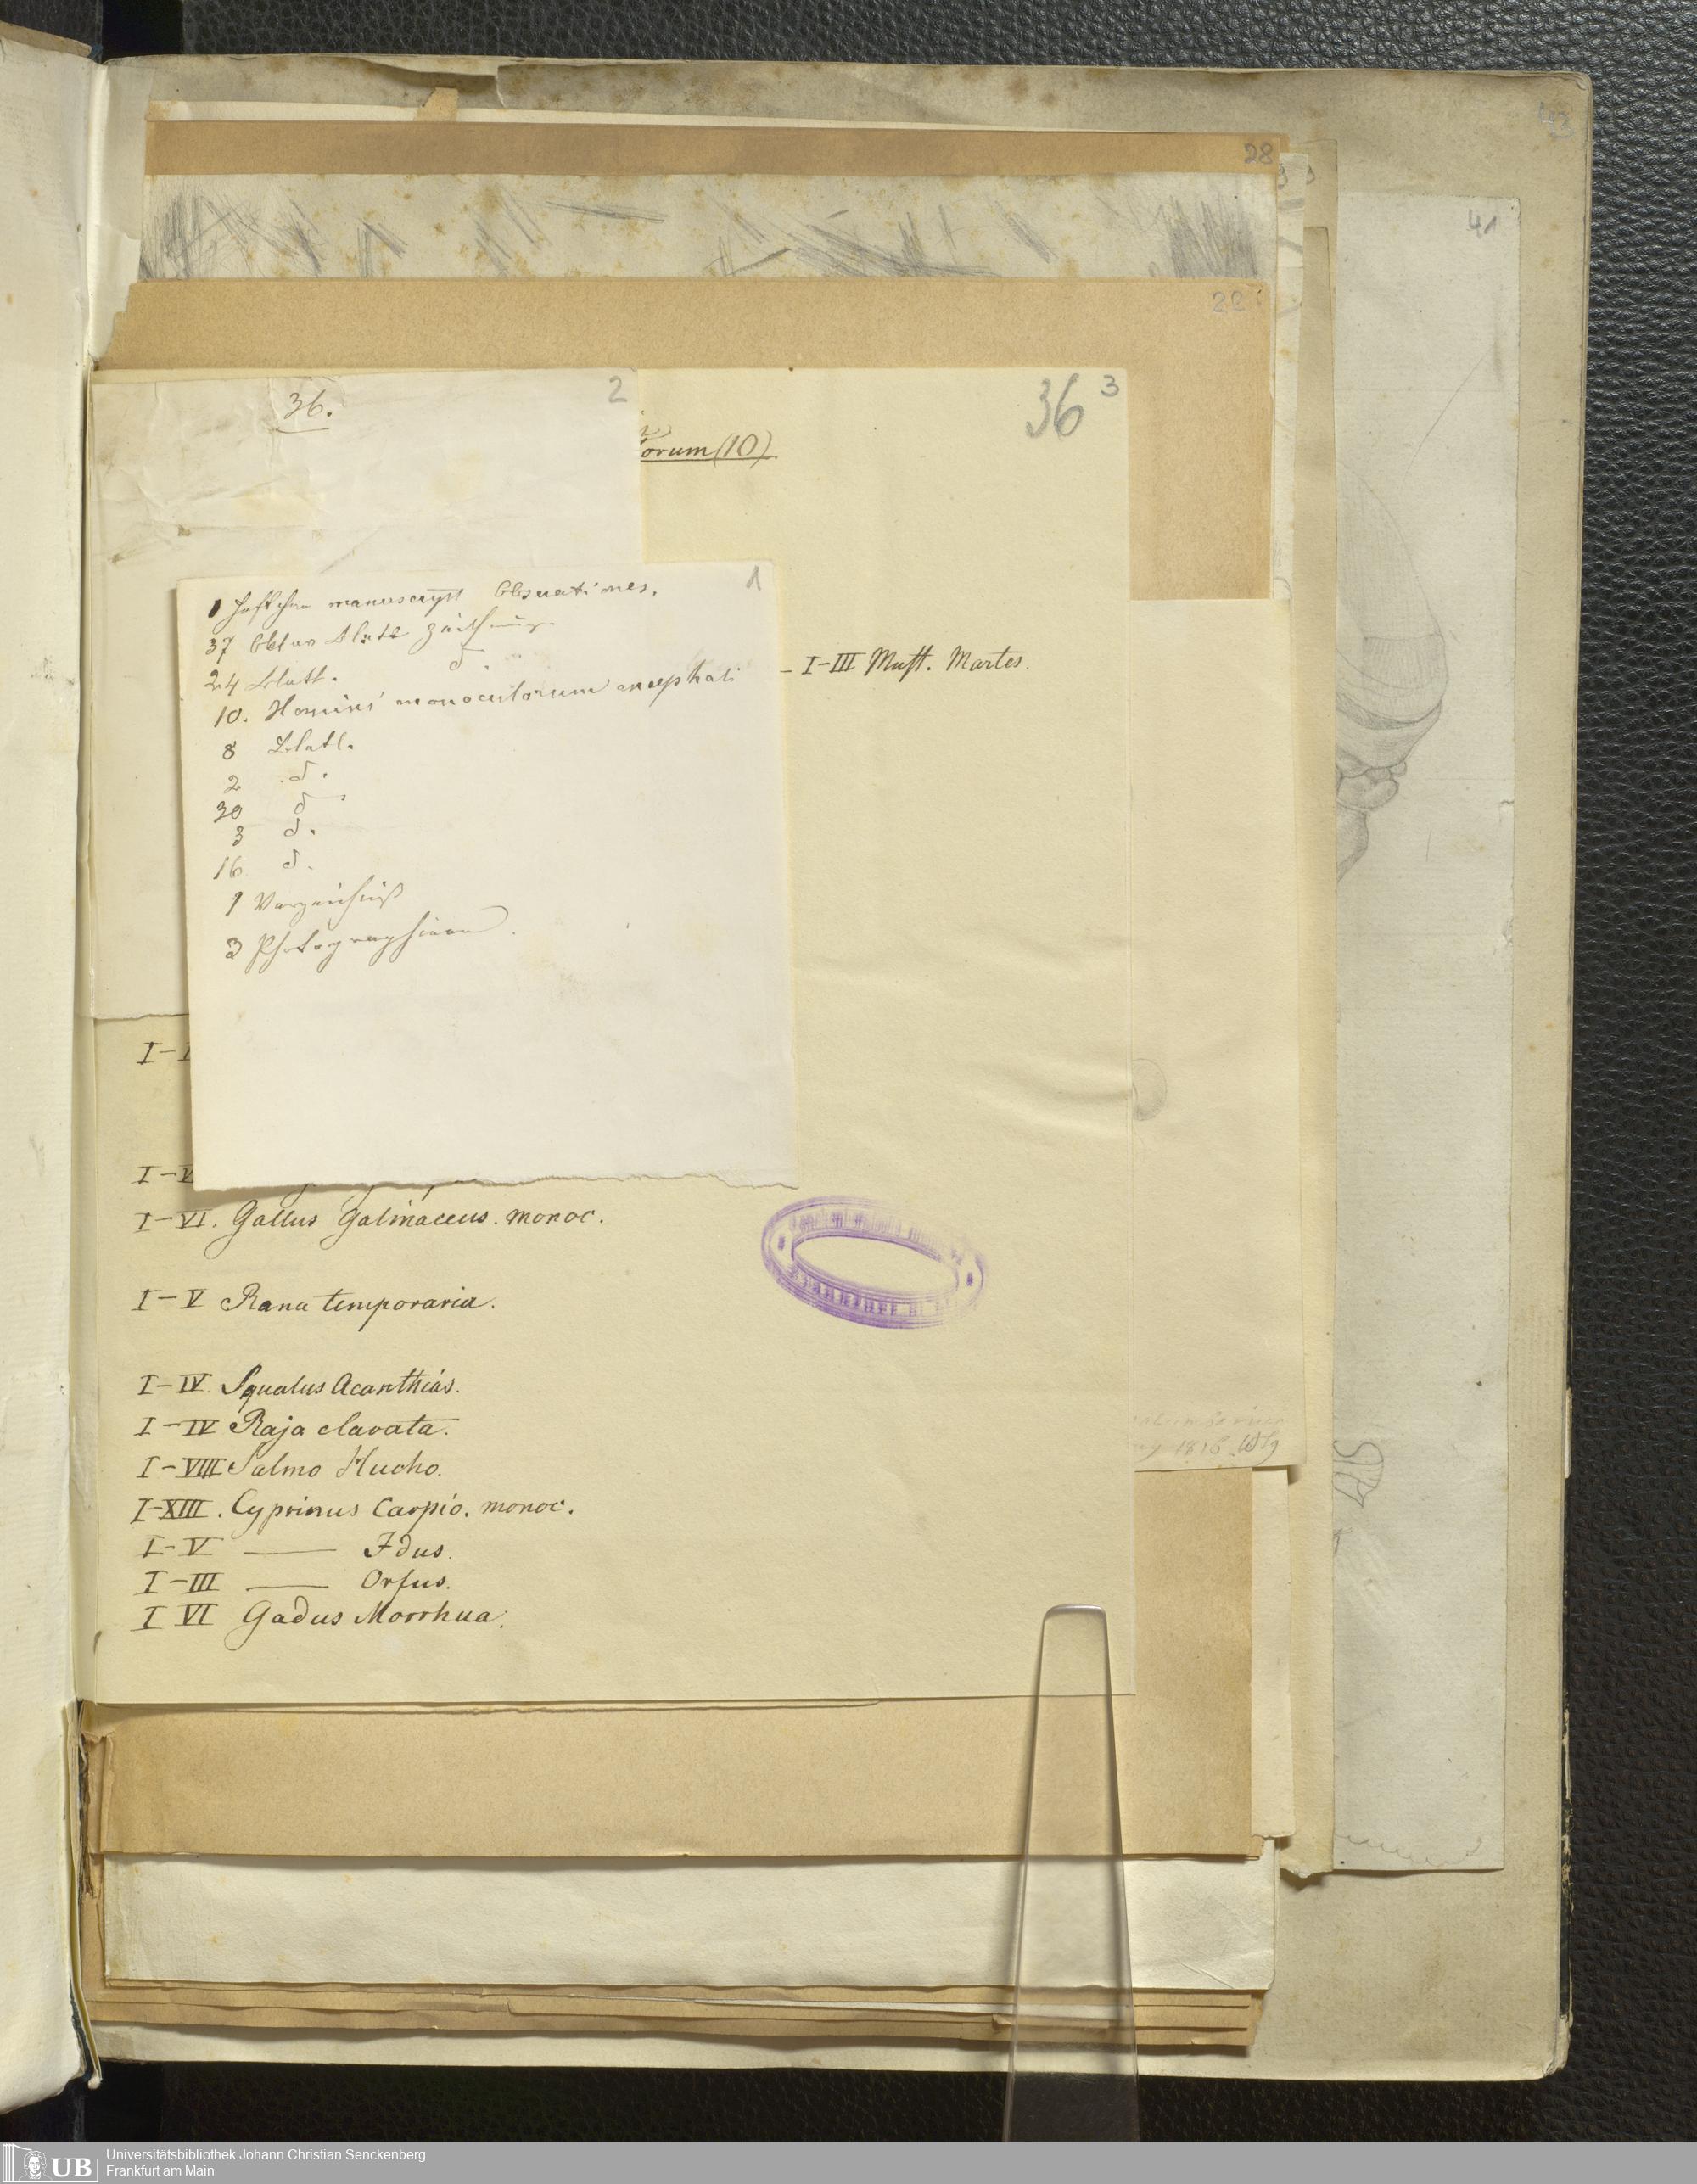 43
28
41
22
36.
2
36 3
orum (10)
1
1 Heftchen manuscript Obseruationes.
37 Octav Blätt Zeichnung
24 Blatt. d.
10. Homini monoculorum encephali
8 Blatt.
2 d.
30 d
3 d.
16 d.
1 Verzeichniß
3 Photographieen.
– I–III Must. Martes.
I–VI. Gallus Galinaceus. monoc.
I–V Rana temporaria.
I–IV. Squalus Acanthias.
I–IV Raja clavata.
I–VIII Salmo Hucho.
I–XIII. Cyprinus Carpio. monoc.
I–V —— Idus.
I–III —— Orfus.
I VI Gadus Morrhua.
Universitätsbibliothek Johann Christian Senckenberg
UB Frankfurt am Main